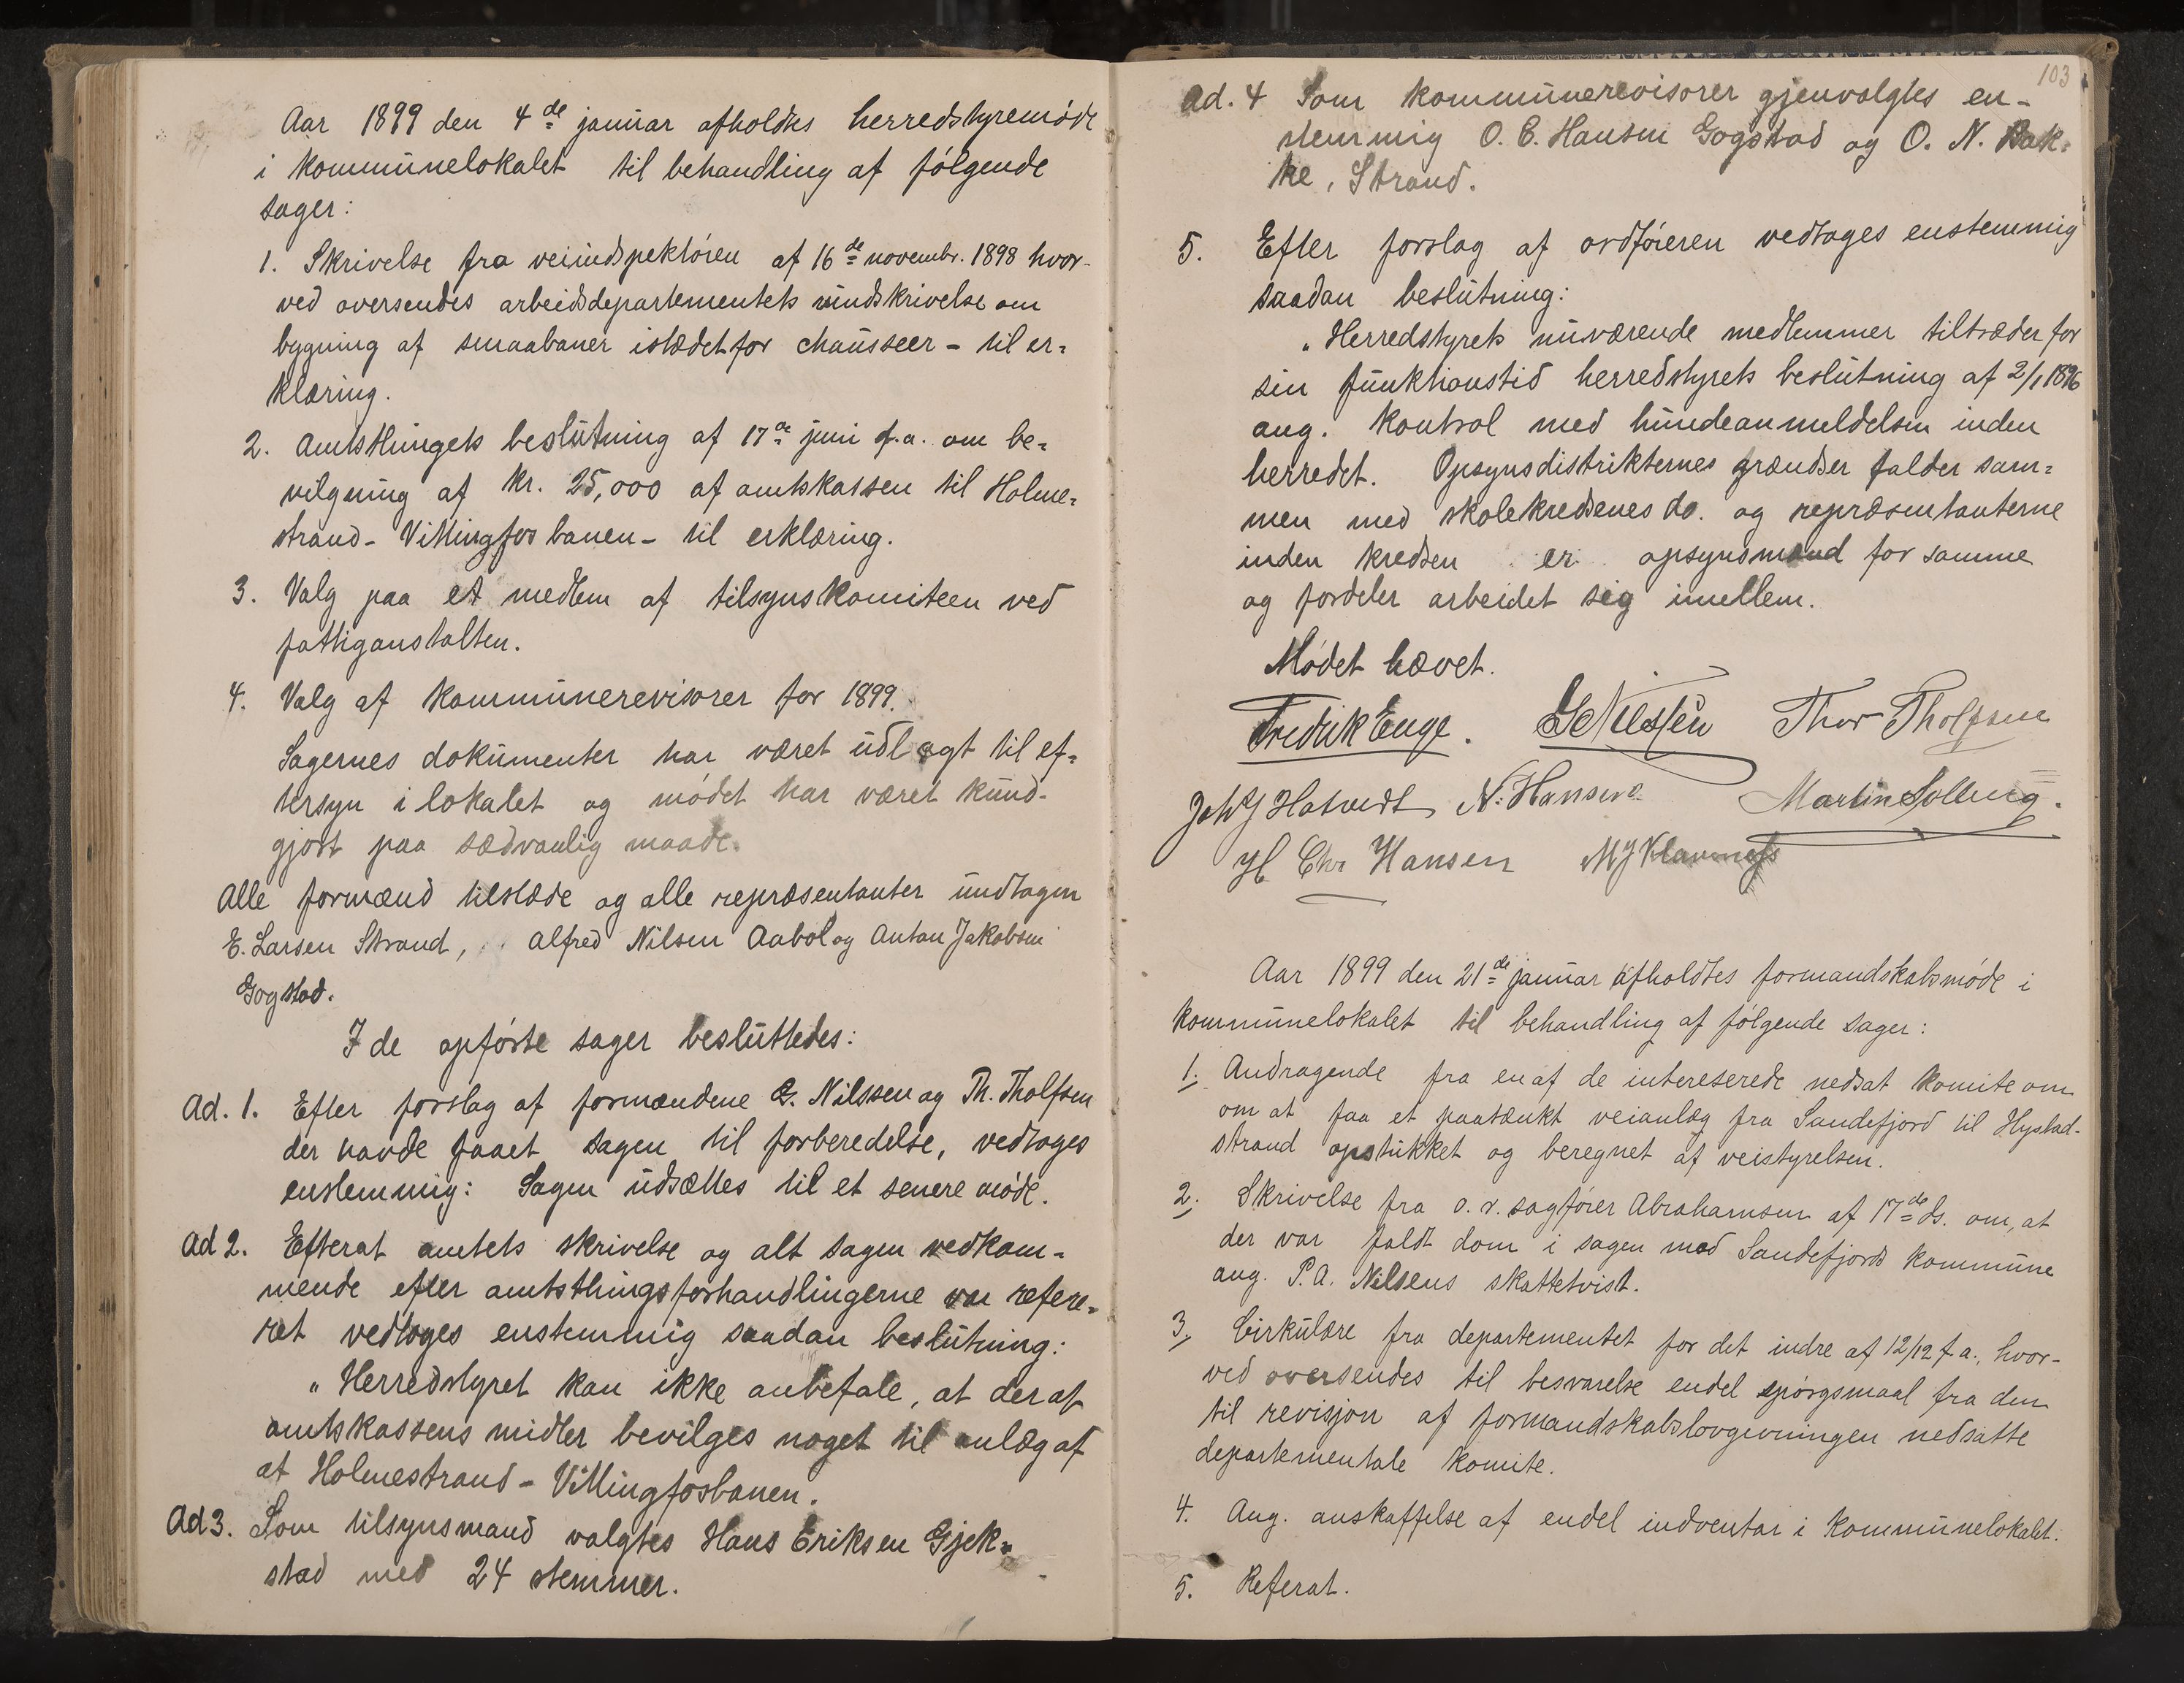 Aar 1899 den 4de januar afholdtes herredstyremøde
i kommunelokalet til behandling af følgende
sager:
1. Skrivelse fra veiindspektøren af 16de novembr. 1898 hvor-
ved oversendes arbeidsdepartementets rundskrivelse om
bygning af smaabaner istædetfor chausseer - til er=
klæring.
2. Amtsthingets beslutning af 17de juni f.a. om be=
vilgning af kr. 25,000 af amtskassen til Holme=
strand - Vittingfosbanen - til erklæring.
3. Valg paa et medlem af tilsynskomiteen ved
fattiganstalten.
4. Valg af kommunerevisorer for 1899.
Sagernes dokumenter har været udlagt til ef=
tersyn i lokalet og mødet har været kund-
gjort paa sædvanlig maade.
Alle formænd tilstæde og alle repræsentanter undtagen
E. Larsen Strand, Alfred Nilsen Aabol og Anton Jakobsen
Gogstad.
I de opførte sager besluttedes:
Ad. 1. Efter forslag af formændene G. Nilssen og Th. Tholfsen
der havde faaet sagen til forberedelse, vedtoges
enstemmig: Sagen udsættes til et senere møde.
Ad 2. Efterat amtets skrivelse og alt sagen vedkom-
mende efter amtsthingsforhandlingerne var refere=
ret vedtoges enstemmig saadan beslutning:
"Herredstyret kan ikke anbefale, at der af
amtskassens midler bevilges noget til anlæg af
at Holmestrand - Vittingfosbanen.
Ad 3. Som tilsynsmand valgtes Hans Eriksen Gjek=
stad med 24 stemmer.
103
Ad. 4 Som kommunerevisorer gjenvalgtes en-
stemmig O. C. Hansen Gogstad og O. N. Bak=
ke, Strand.
5. Efter forslag af ordføreren vedtoges enstemmig
saadan beslutning:
"Herredstyrets nuværende medlemmer tiltræder for
sin funktionstid herredstyrets beslutning af 2/1 1896
ang. kontrol med hundeanmeldelsen inden
herredet. Opsynsdistrikternes grændser falder sam=
men med skolekredsenes do. og repræsentanterne
inden kredsen er opsynsmænd for samme
og fordeler arbeidet sig imellem.
Mødet hævet.
Fredrik Enge. G Nilssen Thor Tholfsen
Joh J Hotvedt N. Hansen Martin Solberg.
H Chr Hansen M J Klaveness
Aar 1899 den 21de januar afholdtes formandskabsmøde i
kommunelokalet til behandling af følgende sager:
1. Andragende fra en af de intereserede nedsat komite om
om at faa et paatænkt veianlæg fra Sandefjord til Hystad-
strand opstukket og beregnet af veistyrelsen.
2. Skrivelse fra o. r. sagfører Abrahamsen af 17de ds. om, at
der var faldt dom i sagen mod Sandefjords kommune
ang. P. A. Nilsens skattetvist.
3. Cirkulære fra departementet for det indre af 12/12 f. a., hvor-
ved oversendes til besvarelse endel spørgsmaal fra den
til revisjon af formandskabslovgivningen nedsatte
departementale komite.
4. Ang. anskaffelse af endel indventar i kommunelokalet.
5. Referat.